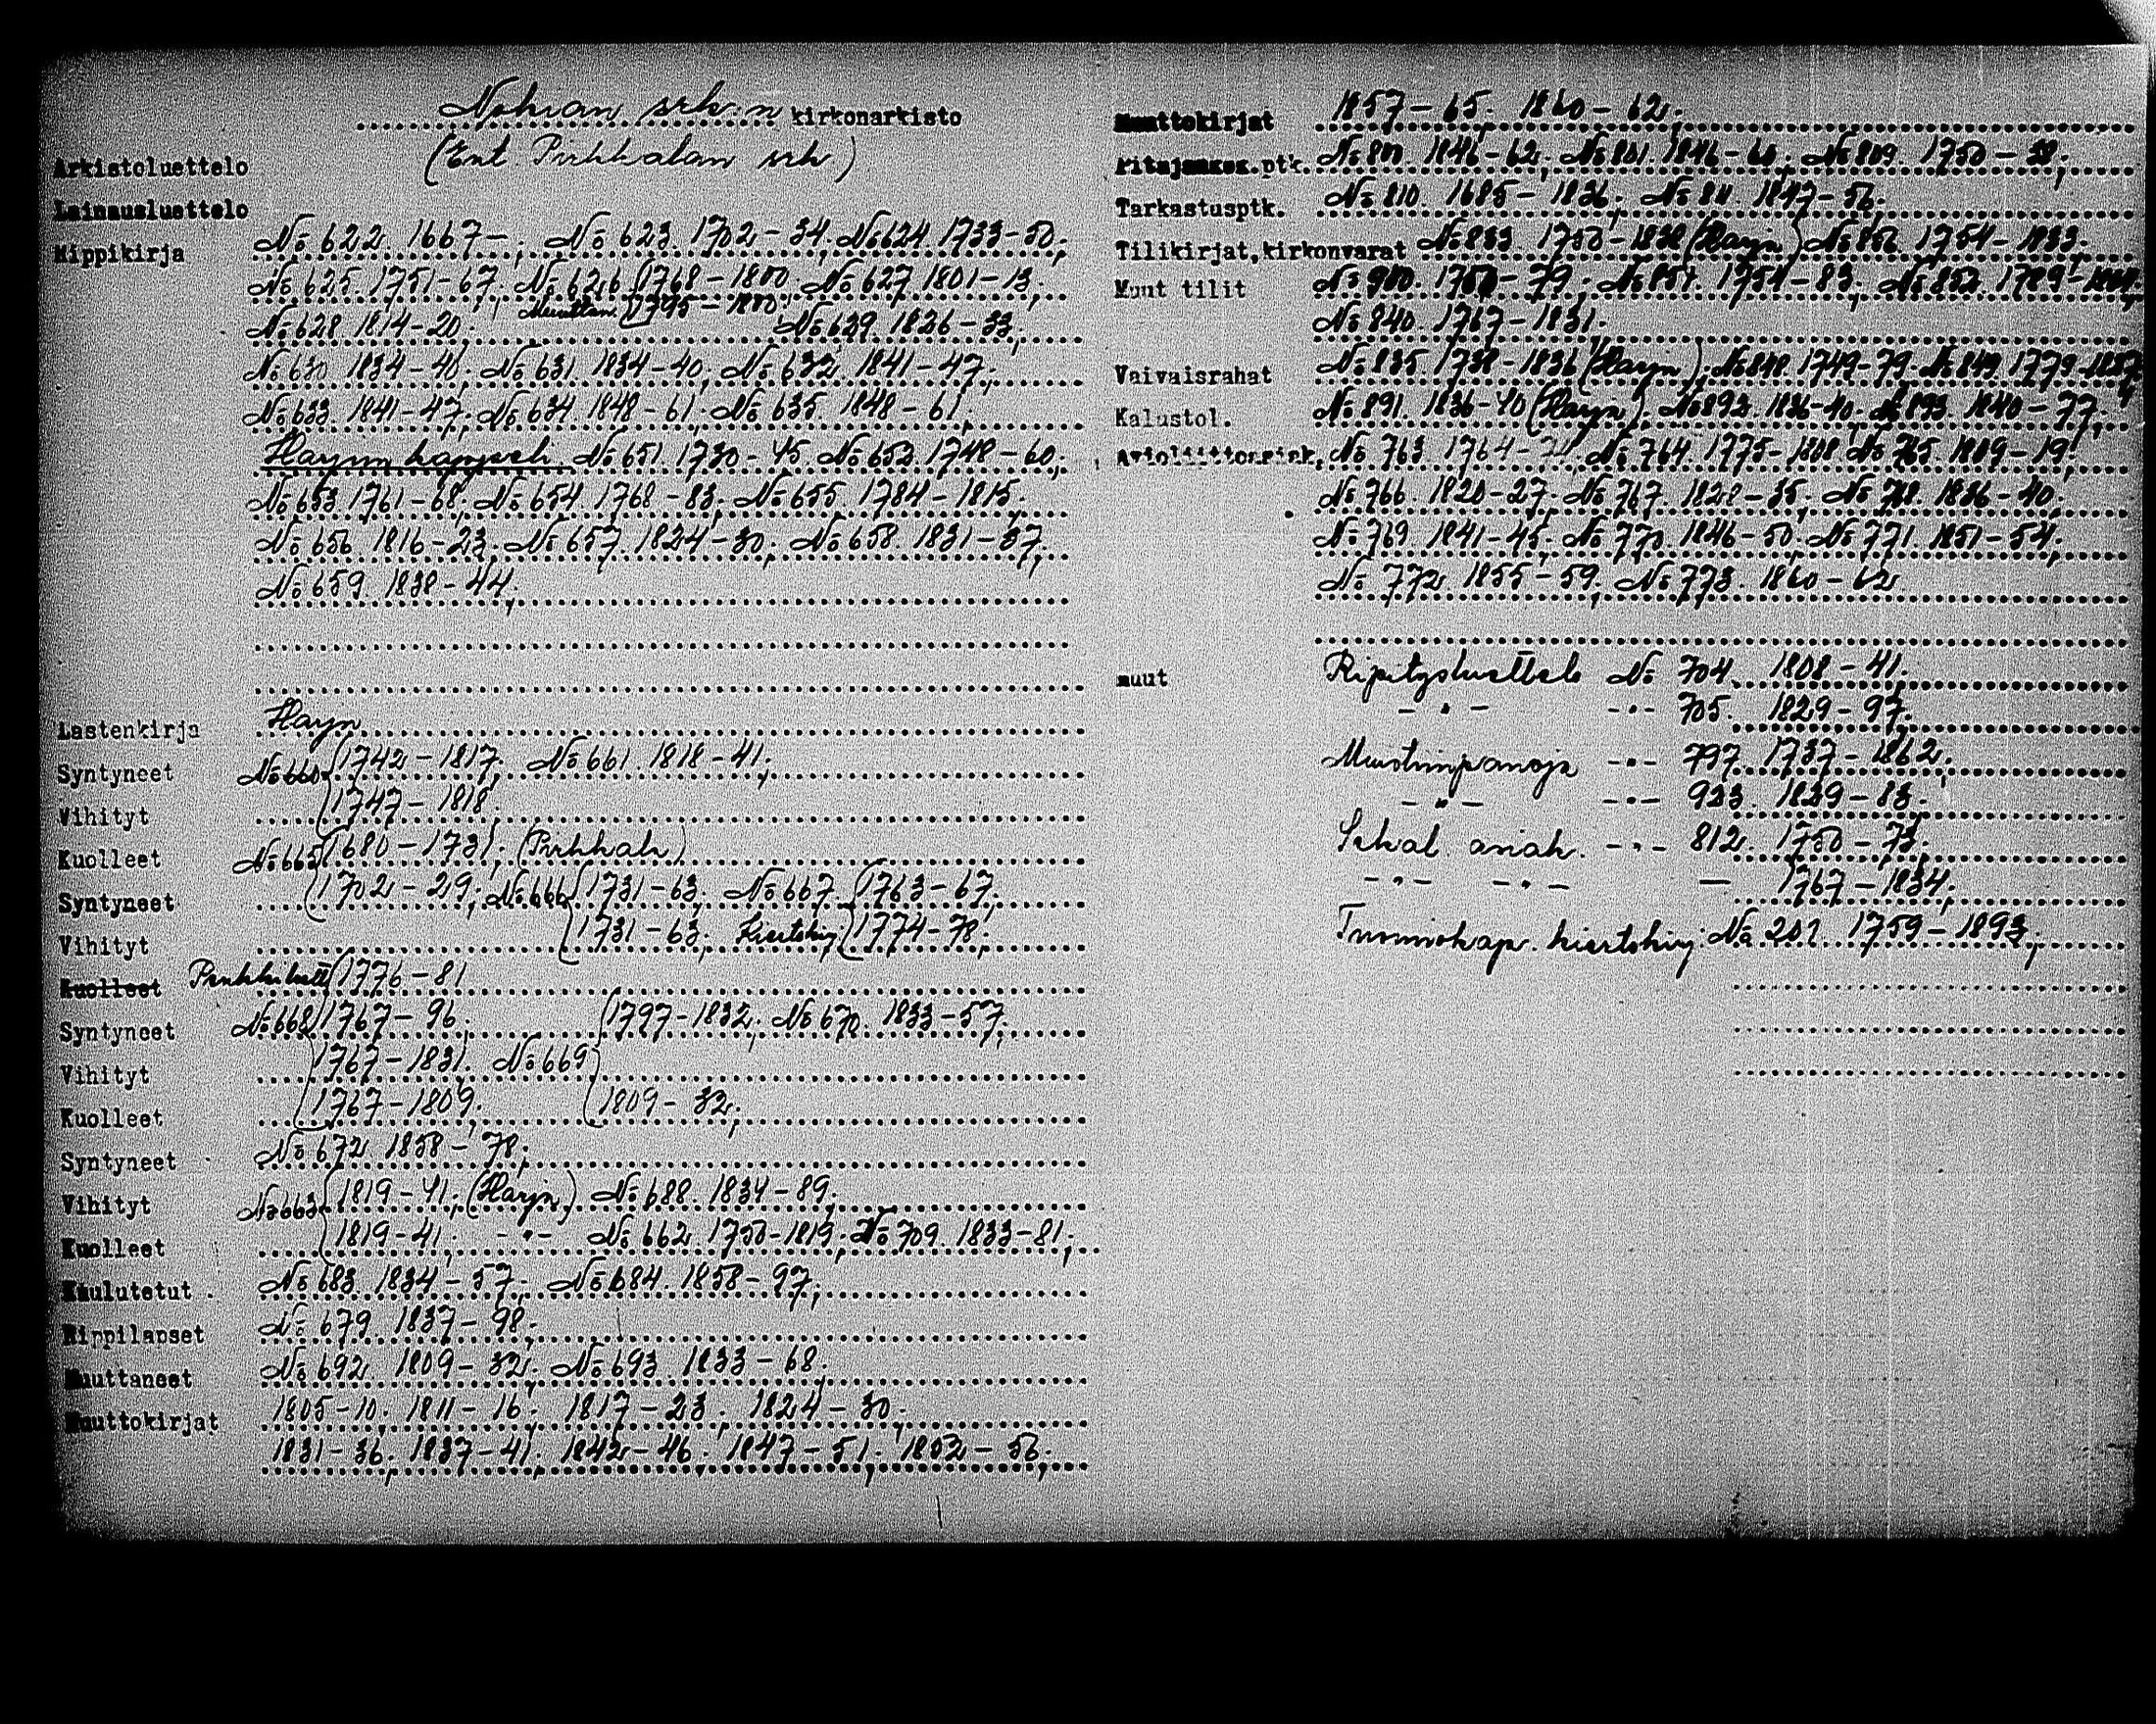 Nokian srk:n kirkonarkisto
(Ent Pirkkalan srk)
Arkistoluettelo
Lainausluettelo
Rippikirja No 622. 1667-; No 623. 1702-34. No 624. 1733-50;
No 625. 1751-67; No 626 (1768-1800. No 627. 1801-13;
Muuttan. 1795-1800.
No 628. 1814-20; No 629. 1826-33;
No 630 1834-40; No 631. 1834-40; No 632. 1841-47;
No 633. 1841-47; No 634. 1848-61; No 635. 1848-61;
Harjun kappeli. No 651. 1730-45. No 652. 1748-60;
No 653. 1761-68; No 654. 1768-83; No 655. 1784-1815;
No 656. 1816-23; No 657. 1824-30; No 658. 1831-37;
No 659. 1838-44;
Lastenkirja Harju
Syntyneet No 660 (1742-1817; No 661. 1818-41;
Vihityt (1747-1818.
Kuolleet No 665 (1680-1731; (Pirkkala)
Syntyneet (1702-29; No 666 (1731-63; No 667. (1763-67;
Vihityt (1731-63; Kiertokirj. (1774-78;
Kuolleet (1776-81
Syntyneet No 668 (1767-96. (1797-1832; No 670. 1833-57;
Vihityt (1767-1831. No 669
Kuolleet (1767-1809. (1809-32;
Syntyneet No 672 1858-78;
Vihityt No 663 (1819-41; (Harju) No 688. 1834-89;
Kuolleet (1819-41; -"- No 662. 1750-1819; No 709. 1833-81;
Kuulutetut No 683. 1834-57; No 684. 1858-97;
Rippilapset No 679. 1837-98;
Muuttaneet No 692. 1809-32; No 693. 1833-68.
Muuttokirjat 1805-10; 1811-16; 1817-23; 1824-30;
1831-36; 1837-41; 1842-46; 1847-51; 1852-56;
Muuttokirjat 1857-65. 1860-62;
ptk. 1846-62; No 801. No 809. 1750-
Tarkastusptk. No 810. 1685-1836; No 811. 1847-56.
Tilikirjat, kirkonvarat No 833. (Harju) 1754-1833.
Muut tilit 1754-83;
No 840. 1767-1831.
Vaivaisrahat No 835. 1738-1836 (Harju); 1749-79
Kalustol. No 891. 1836-40 (Harju). No 892. 1836-40. No 893. 1840-77;
No 763. 1764- No 764. 1775-1808 No 765. 1809-19;
No 766. 1820-27; No 767. 1828-35; No 768. 1836-40;
No 769. 1841-45; No 770. 1846-50. No 771. 1851-54;
No 772 1855-59. No 773. 1860-62
muut Ripitysluettelo No 704. 1808-41.
-"- -"- 705. 1829-97.
Muistiinpanoja -"- 797. 1737-1862.
-"- -"- 923. 1839-83.
Sekal. asiak. -"- 812. 1750-73.
-"- -"- - 1767-1834;
Tuomiokap. kiertokirj. No 201. 1759-1893;